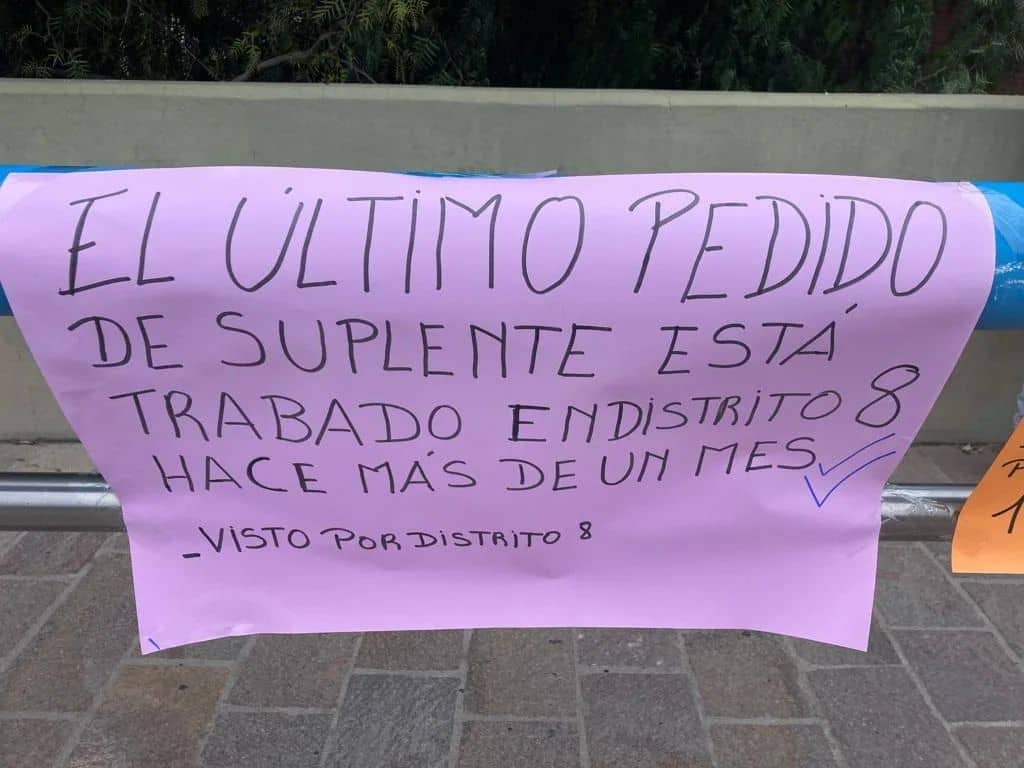 EL ÚLTIMO PEDIDO
DE SUPLENTE ESTÁ
TRABADO EN DISTRITO 8
HACE MÁS DE UN MES
_VISTO POR DISTRITO 8